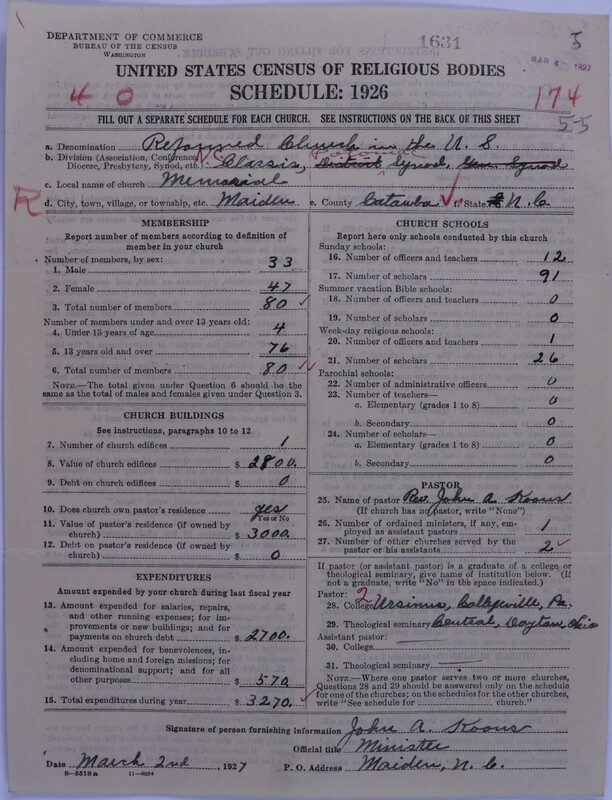 DEPARTMENT OF COMMERCE
BUREAU OF THE CENSUS
WASHINGTON
1631
5
MAR 4 - 1927
UNITED STATES CENSUS OF RELIGIOUS BODIES
SCHEDULE: 1926
4 0
174
5-5
FILL OUT A SEPARATE SCHEDULE FOR EACH CHURCH. SEE INSTRUCTIONS ON THE BACK OF THIS SHEET
a. Denomination Reformed Church in the U. S.
b. Division (Association, Conference, Diocese, Presbytery, Synod, etc.): N.C. Classis, Potomac District Synod, Gen. Synod
c. Local name of church Memorial
R
d. City, town, village, or township, etc. Maiden e. County Catawba f. State N. C.
MEMBERSHIP
Report number of members according to definition of member in your church
Number of members, by sex:
1. Male 33
2. Female 47
3. Total number of members 80
Number of members under and over 13 years old:
4. Under 13 years of age 4
5. 13 years old and over 76
6. Total number of members 80
NOTE.—The total given under Question 6 should be the same as the total of males and females given under Question 3.
CHURCH BUILDINGS
See instructions, paragraphs 10 to 12
7. Number of church edifices 1
8. Value of church edifices $ 2800.
9. Debt on church edifices $ 0
10. Does church own pastor's residence yes
Yes or No
11. Value of pastor's residence (if owned by church) $ 3000.
12. Debt on pastor's residence (if owned by church) $ 0
EXPENDITURES
Amount expended by your church during last fiscal year
13. Amount expended for salaries, repairs, and other running expenses; for improvements or new buildings; and for payments on church debt $ 2700.
14. Amount expended for benevolences, including home and foreign missions; for denominational support; and for all other purposes $ 570
15. Total expenditures during year $ 3270.
CHURCH SCHOOLS
Report here only schools conducted by this church
Sunday schools:
16. Number of officers and teachers 12
17. Number of scholars 91
Summer vacation Bible schools:
18. Number of officers and teachers 0
19. Number of scholars 0
Week-day religious schools:
20. Number of officers and teachers 1
21. Number of scholars 26
Parochial schools:
22. Number of administrative officers 0
23. Number of teachers—
a. Elementary (grades 1 to 8) 0
b. Secondary 0
24. Number of scholars—
a. Elementary (grades 1 to 8) 0
b. Secondary 0
PASTOR
25. Name of pastor Rev. John A. Koons
(If church has no pastor, write "None")
26. Number of ordained ministers, if any, employed as assistant pastors 1
27. Number of other churches served by the pastor or his assistants 2
If pastor (or assistant pastor) is a graduate of a college or theological seminary, give name of institution below. (If not a graduate, write "No" in the space indicated.)
Pastor: 2
28. College Ursinus, Collegeville, Pa.
29. Theological seminary Central, Dayton, Ohio
Assistant pastor:
30. College
31. Theological seminary
NOTE.—Where one pastor serves two or more churches, Questions 28 and 29 should be answered only on the schedule for one of the churches; on the schedules for the other churches, write "See schedule for ........ church."
Signature of person furnishing information John A. Koons
Official title Minister
Date March 2nd, 1927 P. O. Address Maiden, N. C.
8-5518a 11-9054